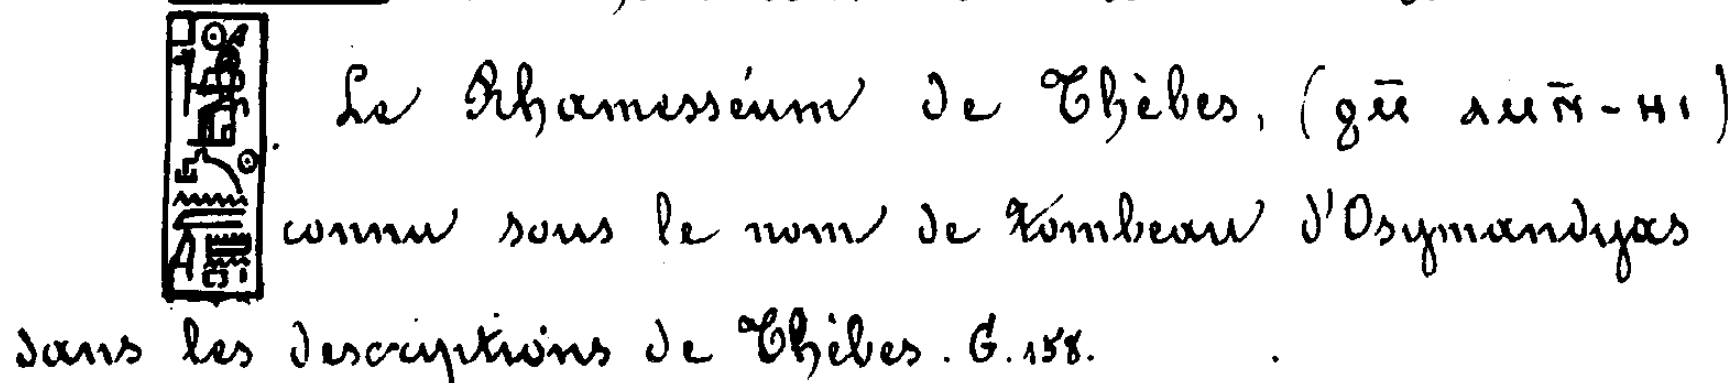 Le Rhamesséum de Thèbes, (ϩⲙ̄ ⲁⲙⲛ̄-ⲏⲓ)
connu sous le nom de tombeau d'Osymandyas
dans les descriptions de Thèbes. G. 158.